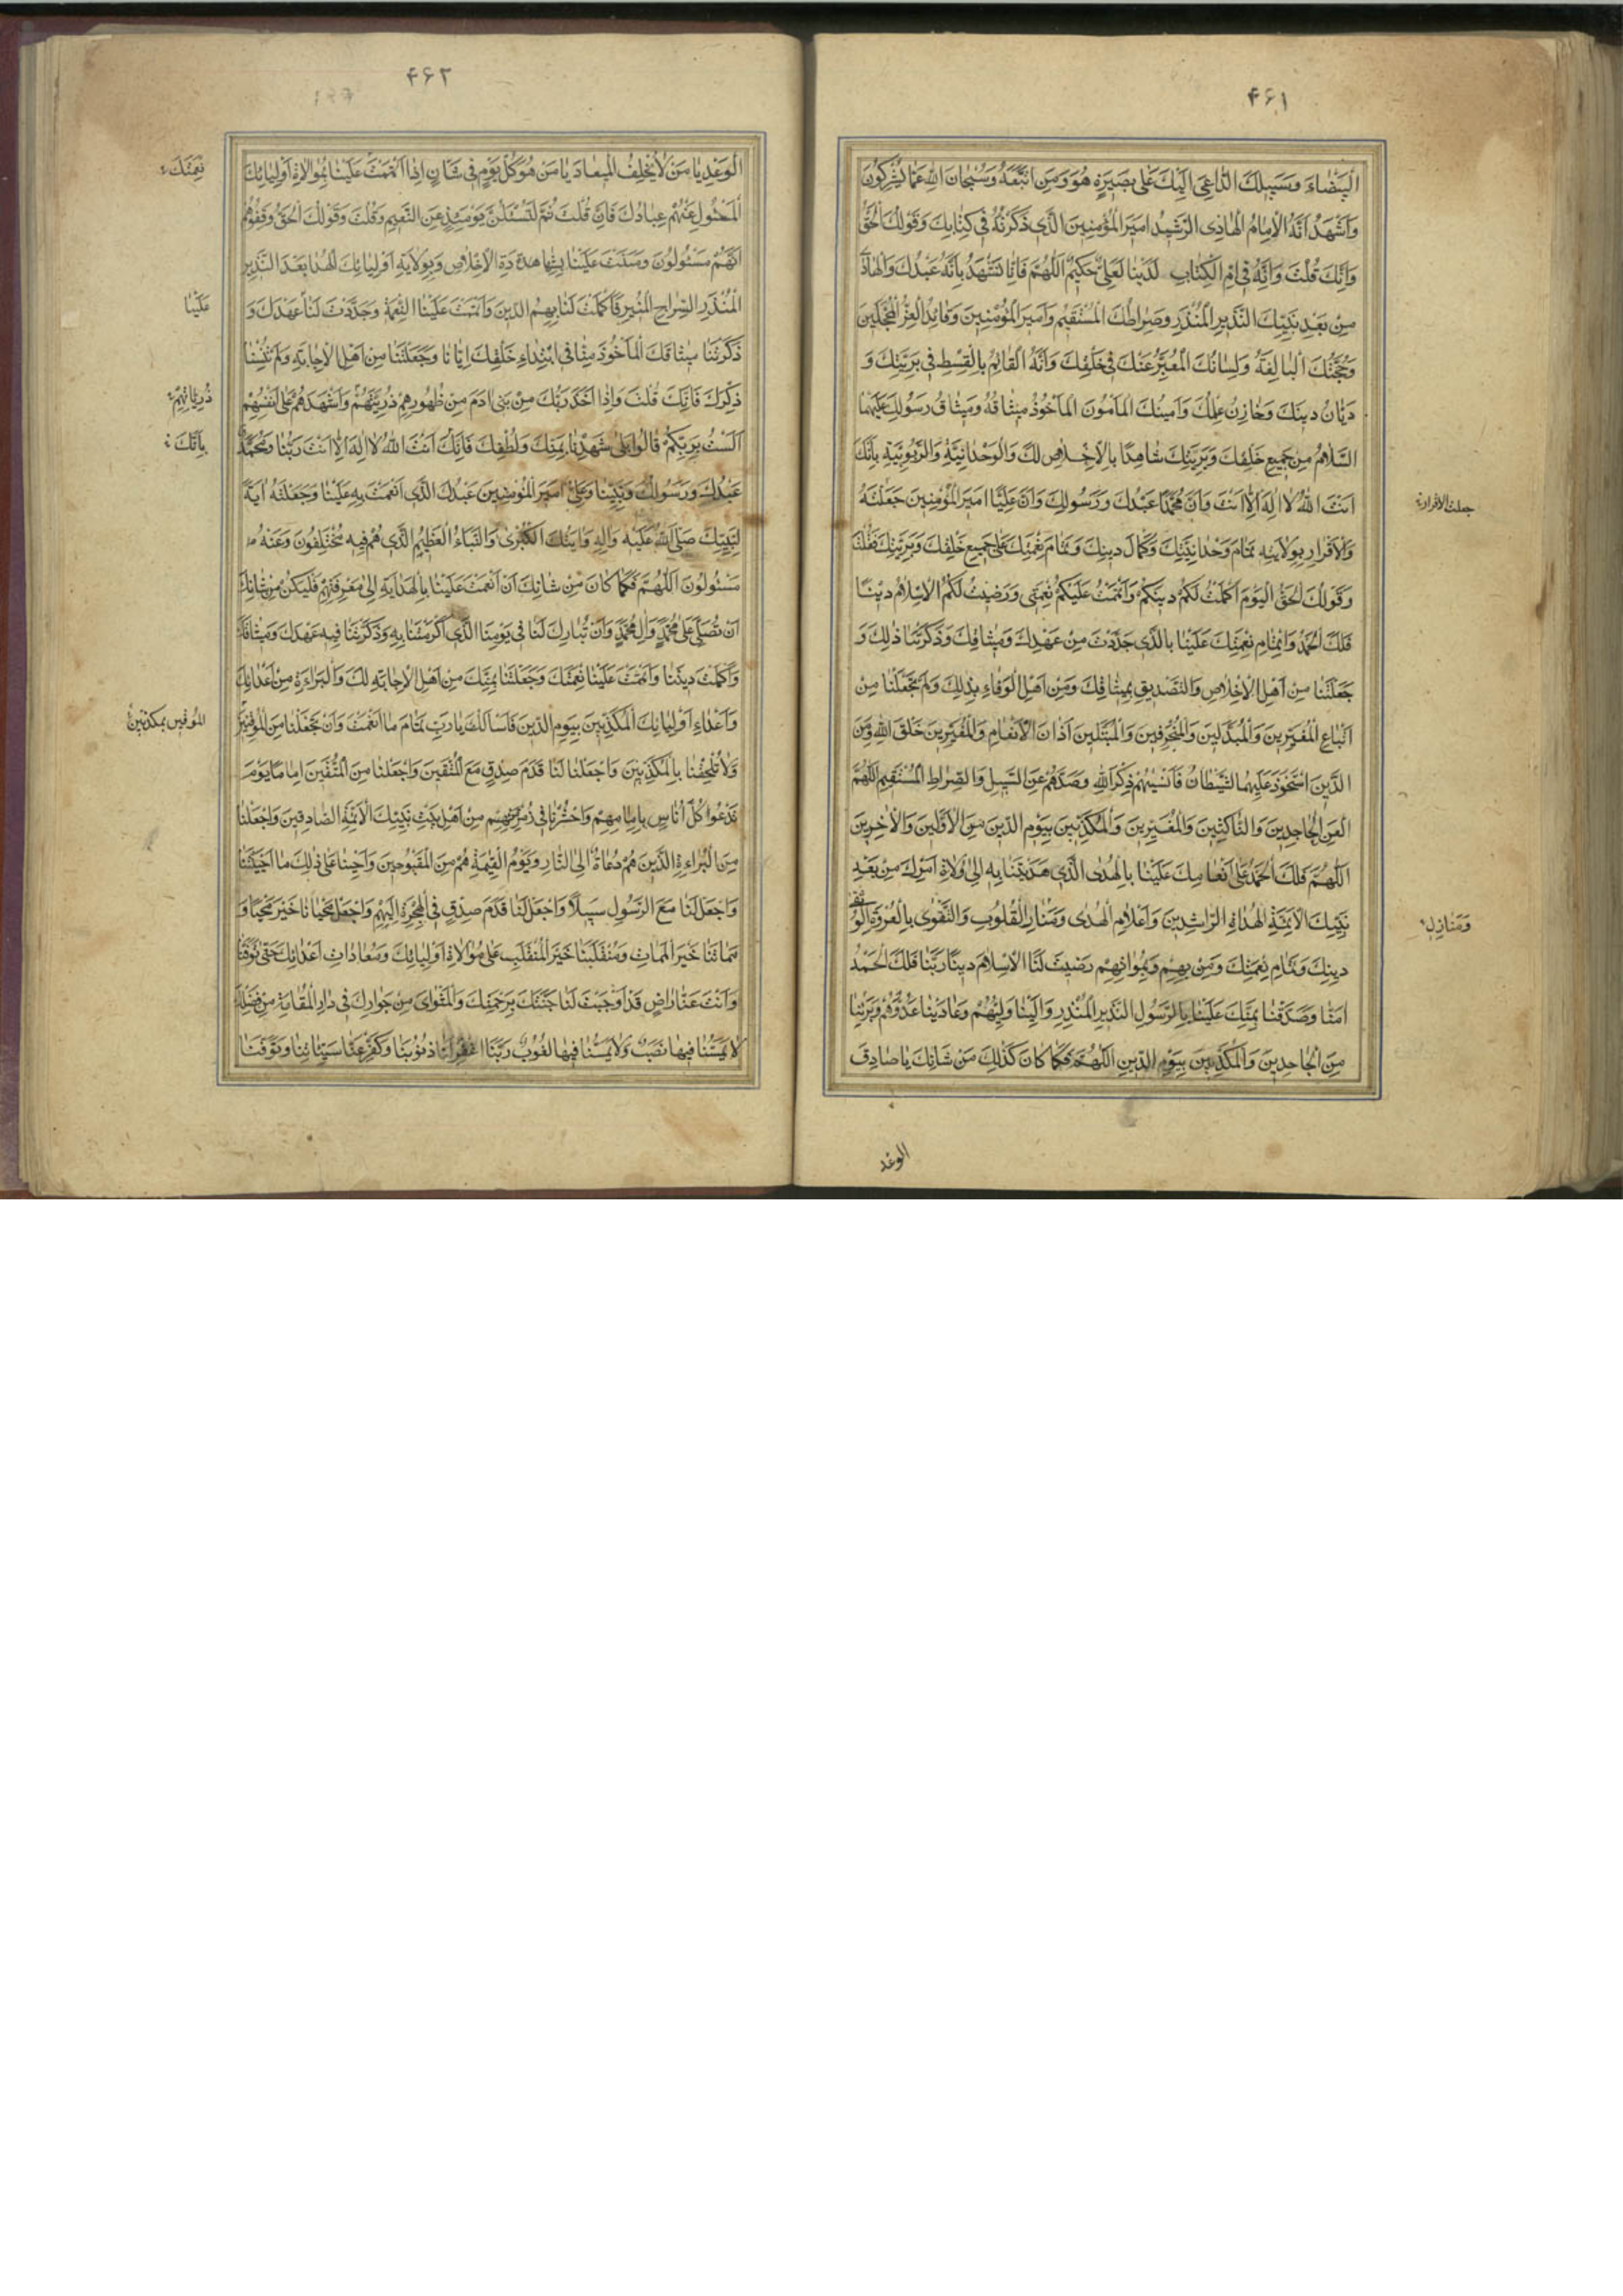 ۴۶۱
الْبَيْضَاءَ وَسَبِيلَكَ الدَّاعِيَ اِلَيْكَ عَلٰى بَصِيرَةٍ هُوَ وَمَنِ اتَّبَعَهُ وَسُبْحَانَ اللهِ عَمَّا يُشْرِكُونَ
وَاَشْهَدُ اَنَّهُ الْاِمَامُ الْهَادِى الرَّشِيدُ اَمِيرُ الْمُؤْمِنِينَ الَّذِى ذَكَرْتَهُ فِى كِتَابِكَ وَقَوْلُكَ الْحَقُّ
وَاِنَّكَ قُلْتَ وَاِنَّهُ فِى اُمِّ الْكِتَابِ لَدَيْنَا لَعَلِىٌّ حَكِيمٌ اَللّٰهُمَّ فَاِنَّا نَشْهَدُ بِاَنَّهُ عَبْدُكَ وَالْهَادِ
مِنْ بَعْدِ نَبِيِّكَ النَّذِيرِ الْمُنْذِرِ وَصِرَاطُكَ الْمُسْتَقِيمُ وَاَمِيرُ الْمُؤْمِنِينَ وَقَائِدُ الْغُرِّ الْمُحَجَّلِينَ
وَحُجَّتُكَ الْبَالِغَةُ وَلِسَانُكَ الْمُعَبِّرُ عَنْكَ فِى خَلْقِكَ وَاَنَّهُ الْقَائِمُ بِالْقِسْطِ فِى بَرِيَّتِكَ وَ
دَيَّانُ دِينِكَ وَخَازِنُ عِلْمِكَ وَاَمِينُكَ الْمَاْمُونُ الْمَاْخُوذُ مِيثَاقُهُ وَمِيثَاقُ رَسُولِكَ عَلَيْهِمَا
السَّلَامُ مِنْ جَمِيعِ خَلْقِكَ وَبَرِيَّتِكَ شَاهِدًا بِالْاِخْلَاصِ لَكَ وَالْوَحْدَانِيَّةِ وَالرُّبُوبِيَّةِ بِاَنَّكَ
اَنْتَ اللهُ لَا اِلٰهَ اِلَّا اَنْتَ وَاَنَّ مُحَمَّدًا عَبْدُكَ وَرَسُولُكَ وَاَنَّ عَلِيًّا اَمِيرُ الْمُؤْمِنِينَ جَعَلْتَهُ
وَالْاِقْرَارِ بِوِلَايَتِهِ تَمَامَ وَحْدَانِيَّتِكَ وَكَمَالَ دِينِكَ وَتَمَامَ نِعْمَتِكَ عَلٰى جَمِيعِ خَلْقِكَ وَبَرِيَّتِكَ فَقُلْتَ
وَقَوْلُكَ الْحَقُّ اَلْيَوْمَ اَكْمَلْتُ لَكُمْ دِينَكُمْ وَاَتْمَمْتُ عَلَيْكُمْ نِعْمَتِى وَرَضِيتُ لَكُمُ الْاِسْلَامَ دِينًا
فَلَكَ الْحَمْدُ وَاِتْمَامِ نِعْمَتِكَ عَلَيْنَا بِالَّذِى جَدَّدْتَ مِنْ عَهْدِكَ وَمِيثَاقِكَ وَذَكَّرْتَنَا ذٰلِكَ وَ
جَعَلْتَنَا مِنْ اَهْلِ الْاِخْلَاصِ وَالتَّصْدِيقِ بِمِيثَاقِكَ وَمِنْ اَهْلِ الْوَفَاءِ بِذٰلِكَ وَلَمْ تَجْعَلْنَا مِنْ
اَتْبَاعِ الْمُغَيِّرِينَ وَالْمُبَدِّلِينَ وَالْمُنْحَرِفِينَ وَالْمُبَتِّلِينَ اٰذَانَ الْاَنْعَامِ وَالْمُغَيِّرِينَ خَلْقَ اللهِ وَمِنَ
الَّذِينَ اسْتَحْوَذَ عَلَيْهِمُ الشَّيْطَانُ فَاَنْسٰيهُمْ ذِكْرَ اللهِ وَصَدَّهُمْ عَنِ السَّبِيلِ وَالصِّرَاطِ الْمُسْتَقِيمِ اَللّٰهُمَّ
الْعَنِ الْجَاحِدِينَ وَالنَّاكِثِينَ وَالْمُغَيِّرِينَ وَالْمُكَذِّبِينَ بِيَوْمِ الدِّينِ مِنَ الْاَوَّلِينَ وَالْاٰخِرِينَ
اَللّٰهُمَّ فَلَكَ الْحَمْدُ عَلٰى اِنْعَامِكَ عَلَيْنَا بِالْهُدَى الَّذِى هَدَيْتَنَا بِهِ اِلٰى وُلَاةِ اَمْرِكَ مِنْ بَعْدِ
نَبِيِّكَ الْاَئِمَّةِ الْهُدَاةِ الرَّاشِدِينَ وَاَعْلَامِ الْهُدٰى وَمَنَارِ الْقُلُوبِ وَالتَّقْوٰى بِالْعُرْوَةِ الْوُثْقٰى
دِينِكَ وَتَمَامِ نِعْمَتِكَ وَمَنْ بِهِمْ وَبِمُوَالَاتِهِمْ رَضِيتَ لَنَا الْاِسْلَامَ دِينًا رَبَّنَا فَلَكَ الْحَمْدُ
اٰمَنَّا وَصَدَّقْنَا بِمَنِّكَ عَلَيْنَا بِالرَّسُولِ النَّذِيرِ الْمُنْذِرِ وَالَيْنَا وَلِيَّهُمْ وَعَادَيْنَا عَدُوَّهُمْ وَبَرِئْنَا
مِنَ الْجَاحِدِينَ وَالْمُكَذِّبِينَ بِيَوْمِ الدِّينِ اَللّٰهُمَّ فَكَمَا كَانَ كَذٰلِكَ مِنْ شَاْنِكَ يَا صَادِقَ
وَمَنَازِلِ
الوعد
۴۶۲
الْوَعْدِ يَا مَنْ لَا يُخْلِفُ الْمِيعَادَ يَا مَنْ هُوَ كُلَّ يَوْمٍ فِى شَاْنٍ اِذَا اَتْمَمْتَ عَلَيْنَا بِمُوَالَاةِ اَوْلِيَائِكَ
الْمَسْئُولِ عَنْهُمْ عِبَادُكَ فَاِنَّكَ قُلْتَ ثُمَّ لَتُسْئَلُنَّ يَوْمَئِذٍ عَنِ النَّعِيمِ وَقُلْتَ وَقَوْلُكَ الْحَقُّ وَقِفُوهُمْ
اِنَّهُمْ مَسْئُولُونَ وَمَنَنْتَ عَلَيْنَا بِشَهَادَةِ الْاِخْلَاصِ وَبِوِلَايَةِ اَوْلِيَائِكَ الْهُدَاةِ بَعْدَ النَّذِيرِ
الْمُنْذِرِ السِّرَاجِ الْمُنِيرِ فَاَكْمَلْتَ لَنَا بِهِمُ الدِّينَ وَاَتْمَمْتَ عَلَيْنَا النِّعْمَةَ وَجَدَّدْتَ لَنَا عَهْدَكَ وَ
ذَكَّرْتَنَا مِيثَاقَكَ الْمَاْخُوذَ مِنَّا فِى ابْتِدَاءِ خَلْقِكَ اِيَّانَا وَجَعَلْتَنَا مِنْ اَهْلِ الْاِجَابَةِ وَلَمْ تُنْسِنَا
ذِكْرَكَ فَاِنَّكَ قُلْتَ وَاِذْ اَخَذَ رَبُّكَ مِنْ بَنِى اٰدَمَ مِنْ ظُهُورِهِمْ ذُرِّيَّتَهُمْ وَاَشْهَدَهُمْ عَلٰى اَنْفُسِهِمْ
اَلَسْتُ بِرَبِّكُمْ قَالُوا بَلٰى شَهِدْنَا بِمَنِّكَ وَلُطْفِكَ فَاِنَّكَ اَنْتَ اللهُ لَا اِلٰهَ اِلَّا اَنْتَ رَبُّنَا وَمُحَمَّدٌ
عَبْدُكَ وَرَسُولُكَ وَنَبِيُّنَا وَعَلِىٌّ اَمِيرُ الْمُؤْمِنِينَ عَبْدُكَ الَّذِى اَنْعَمْتَ بِهِ عَلَيْنَا وَجَعَلْتَهُ اٰيَةً
لِنَبِيِّكَ صَلَّى اللهُ عَلَيْهِ وَاٰلِهِ وَاٰيَتَكَ الْكُبْرٰى وَالنَّبَاَ الْعَظِيمَ الَّذِى هُمْ فِيهِ مُخْتَلِفُونَ وَعَنْهُ
مَسْئُولُونَ اَللّٰهُمَّ فَكَمَا كَانَ مِنْ شَاْنِكَ اَنْ اَنْعَمْتَ عَلَيْنَا بِالْهِدَايَةِ اِلٰى مَعْرِفَتِهِمْ فَلْيَكُنْ مِنْ شَاْنِكَ
اَنْ تُصَلِّىَ عَلٰى مُحَمَّدٍ وَاٰلِ مُحَمَّدٍ وَاَنْ تُبَارِكَ لَنَا فِى يَوْمِنَا الَّذِى اَكْرَمْتَنَا بِهِ وَذَكَّرْتَنَا فِيهِ عَهْدَكَ وَمِيثَاقَكَ
وَاَكْمَلْتَ دِينَنَا وَاَتْمَمْتَ عَلَيْنَا نِعْمَتَكَ وَجَعَلْتَنَا بِمَنِّكَ مِنْ اَهْلِ الْاِجَابَةِ لَكَ وَالْبَرَاءَةِ مِنْ اَعْدَائِكَ
وَاَعْدَاءِ اَوْلِيَائِكَ الْمُكَذِّبِينَ بِيَوْمِ الدِّينِ فَاَسْاَلُكَ يَا رَبِّ تَمَامَ مَا اَنْعَمْتَ وَاَنْ تَجْعَلَنَا مِنَ الْمُوقِنِينَ
وَلَا تُلْحِقْنَا بِالْمُكَذِّبِينَ وَاجْعَلْ لَنَا قَدَمَ صِدْقٍ مَعَ الْمُتَّقِينَ وَاجْعَلْنَا مِنَ الْمُتَّقِينَ اِمَامًا يَوْمَ
نَدْعُوا كُلَّ اُنَاسٍ بِاِمَامِهِمْ وَاحْشُرْنَا فِى زُمْرَتِهِمْ مِنْ اَهْلِ بَيْتِ نَبِيِّكَ الْاَئِمَّةِ الصَّادِقِينَ وَاجْعَلْنَا
مِنَ الْبُرَاءِ مِنَ الَّذِينَ هُمْ دُعَاةٌ اِلَى النَّارِ وَيَوْمَ الْقِيٰمَةِ هُمْ مِنَ الْمَقْبُوحِينَ وَاَحْيِنَا عَلٰى ذٰلِكَ مَا اَحْيَيْتَنَا
وَاجْعَلْ لَنَا مَعَ الرَّسُولِ سَبِيلًا وَاجْعَلْ لَنَا قَدَمَ صِدْقٍ فِى الْهِجْرَةِ اِلَيْهِمْ وَاجْعَلْ مَحْيَانَا خَيْرَ مَحْيًا وَ
مَمَاتَنَا خَيْرَ الْمَمَاتِ وَمُنْقَلَبَنَا خَيْرَ الْمُنْقَلَبِ عَلٰى مُوَالَاةِ اَوْلِيَائِكَ وَمُعَادَاتِ اَعْدَائِكَ حَتّٰى تَوَفَّانَا
وَاَنْتَ عَنَّا رَاضٍ قَدْ اَوْجَبْتَ لَنَا جَنَّتَكَ بِرَحْمَتِكَ وَالْمَثْوٰى مِنْ جِوَارِكَ فِى دَارِ الْمُقَامَةِ مِنْ فَضْلِكَ
لَا يَمَسُّنَا فِيهَا نَصَبٌ وَلَا يَمَسُّنَا فِيهَا لُغُوبٌ رَبَّنَا اغْفِرْ لَنَا ذُنُوبَنَا وَكَفِّرْ عَنَّا سَيِّئَاتِنَا وَتَوَفَّنَا
نِعْمَتَكَ
عَلَيْنَا
ذُرِّيَّاتِهِمْ
بِاَنَّكَ